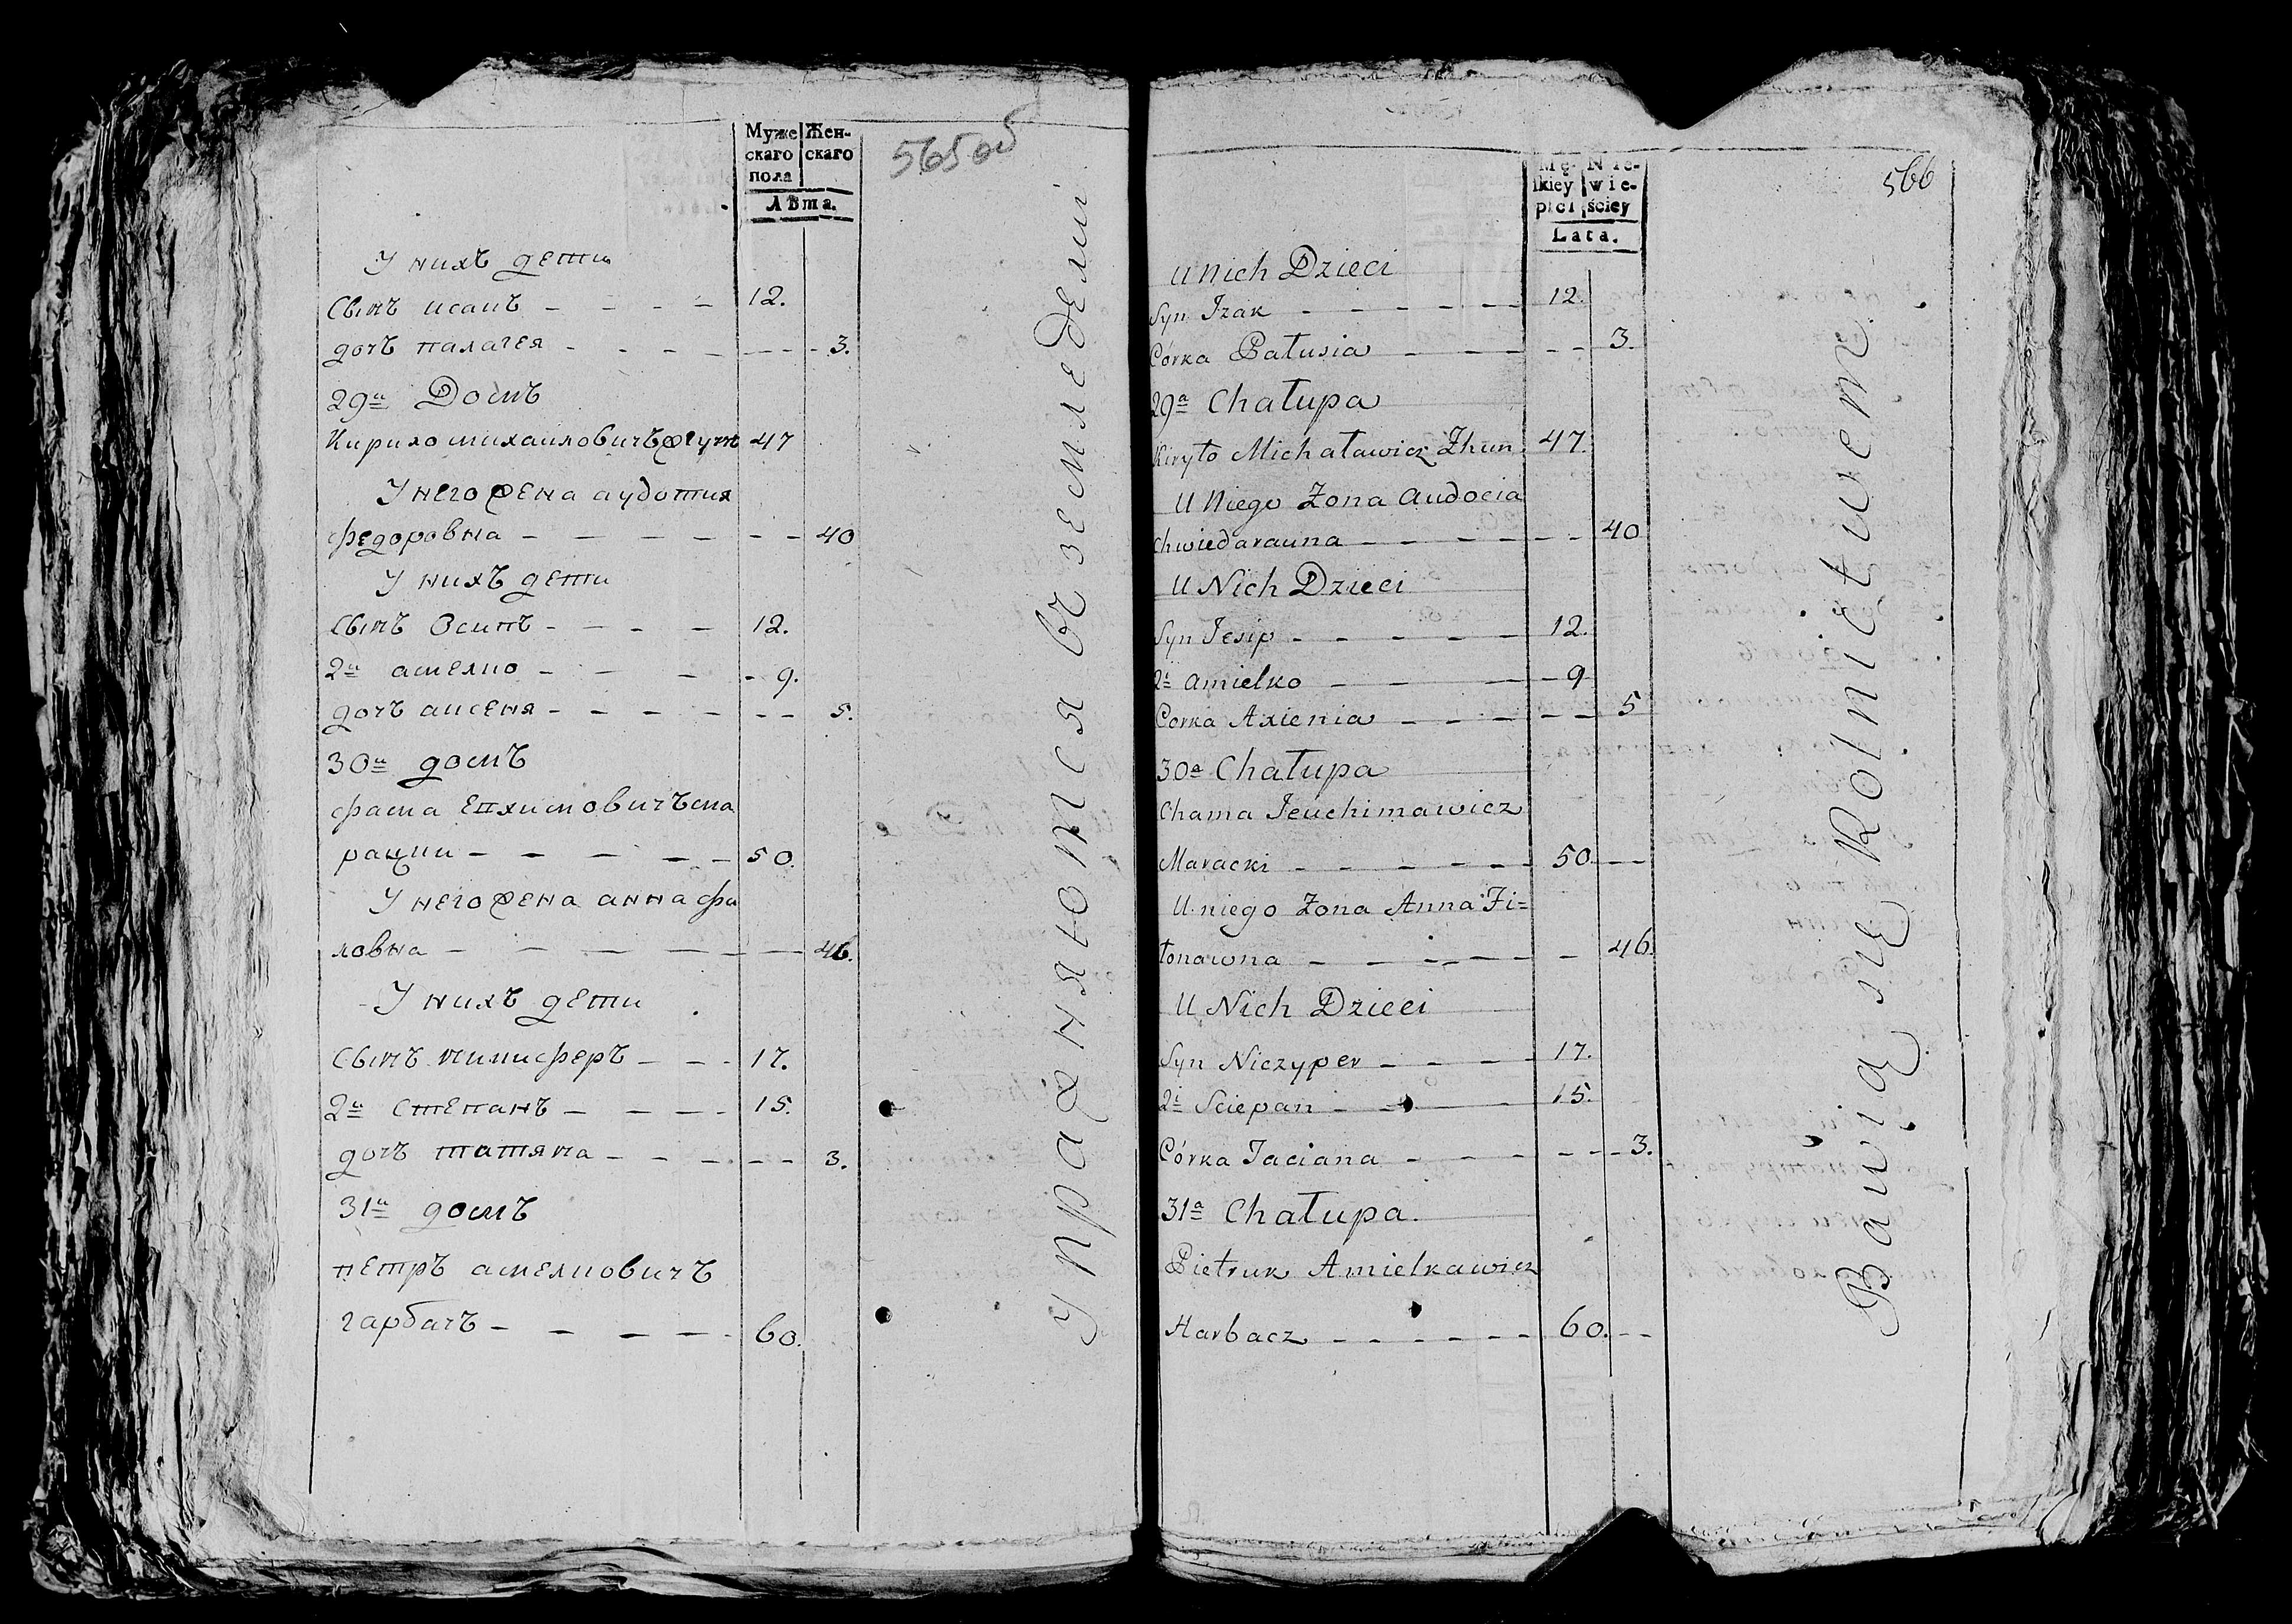 Муже Жен-
скаго скаго
пола
Лѣта.
565 об
У нихъ дети
Сынъ исакъ 12.
дочъ палагея 3.
29й Домъ
Кирило михаиловичъ жгунъ 47
У него жена аудотия
федоровна 40
У нихъ дети
Сынъ Осипъ 12.
2й амелко 9.
дочъ аксеня 5.
30й домъ
фама Епхимовичъ ма
рацки 50.
У него жена анна фи
ловна 46.
У нихъ дети
Сынъ ничиферъ 17.
2й степанъ 15.
дочъ татяна 3.
31й домъ
петръ амелковичъ
гарбачъ 60.
упражняются въ земледелии
Mę- Nie-
zkiey wie-
płci ściey
Lata.
566
U Nich Dzieci
Syn Izak 12.
Córka Pałusia 3.
29a Chałupa
Kiryło Michaławicz Zhun 47.
U Niego Zona Audocia
Chwiedarauna 40
U Nich Dzieci
Syn Jesip 12.
2i Amielko 9
Corka Axienia 5
30a Chałupa
Chama Jeuchimawicz
Maracki 50
U niego Zona Anna Fi=
łonawna 46.
U Nich Dzieci
Syn Niczyper 17.
2i Sciepan 15.
Córka Taciana 3.
31a Chałupa.
Pietruk Amielkawicz
Harbacz 60.
Bawią się Rolnictwem